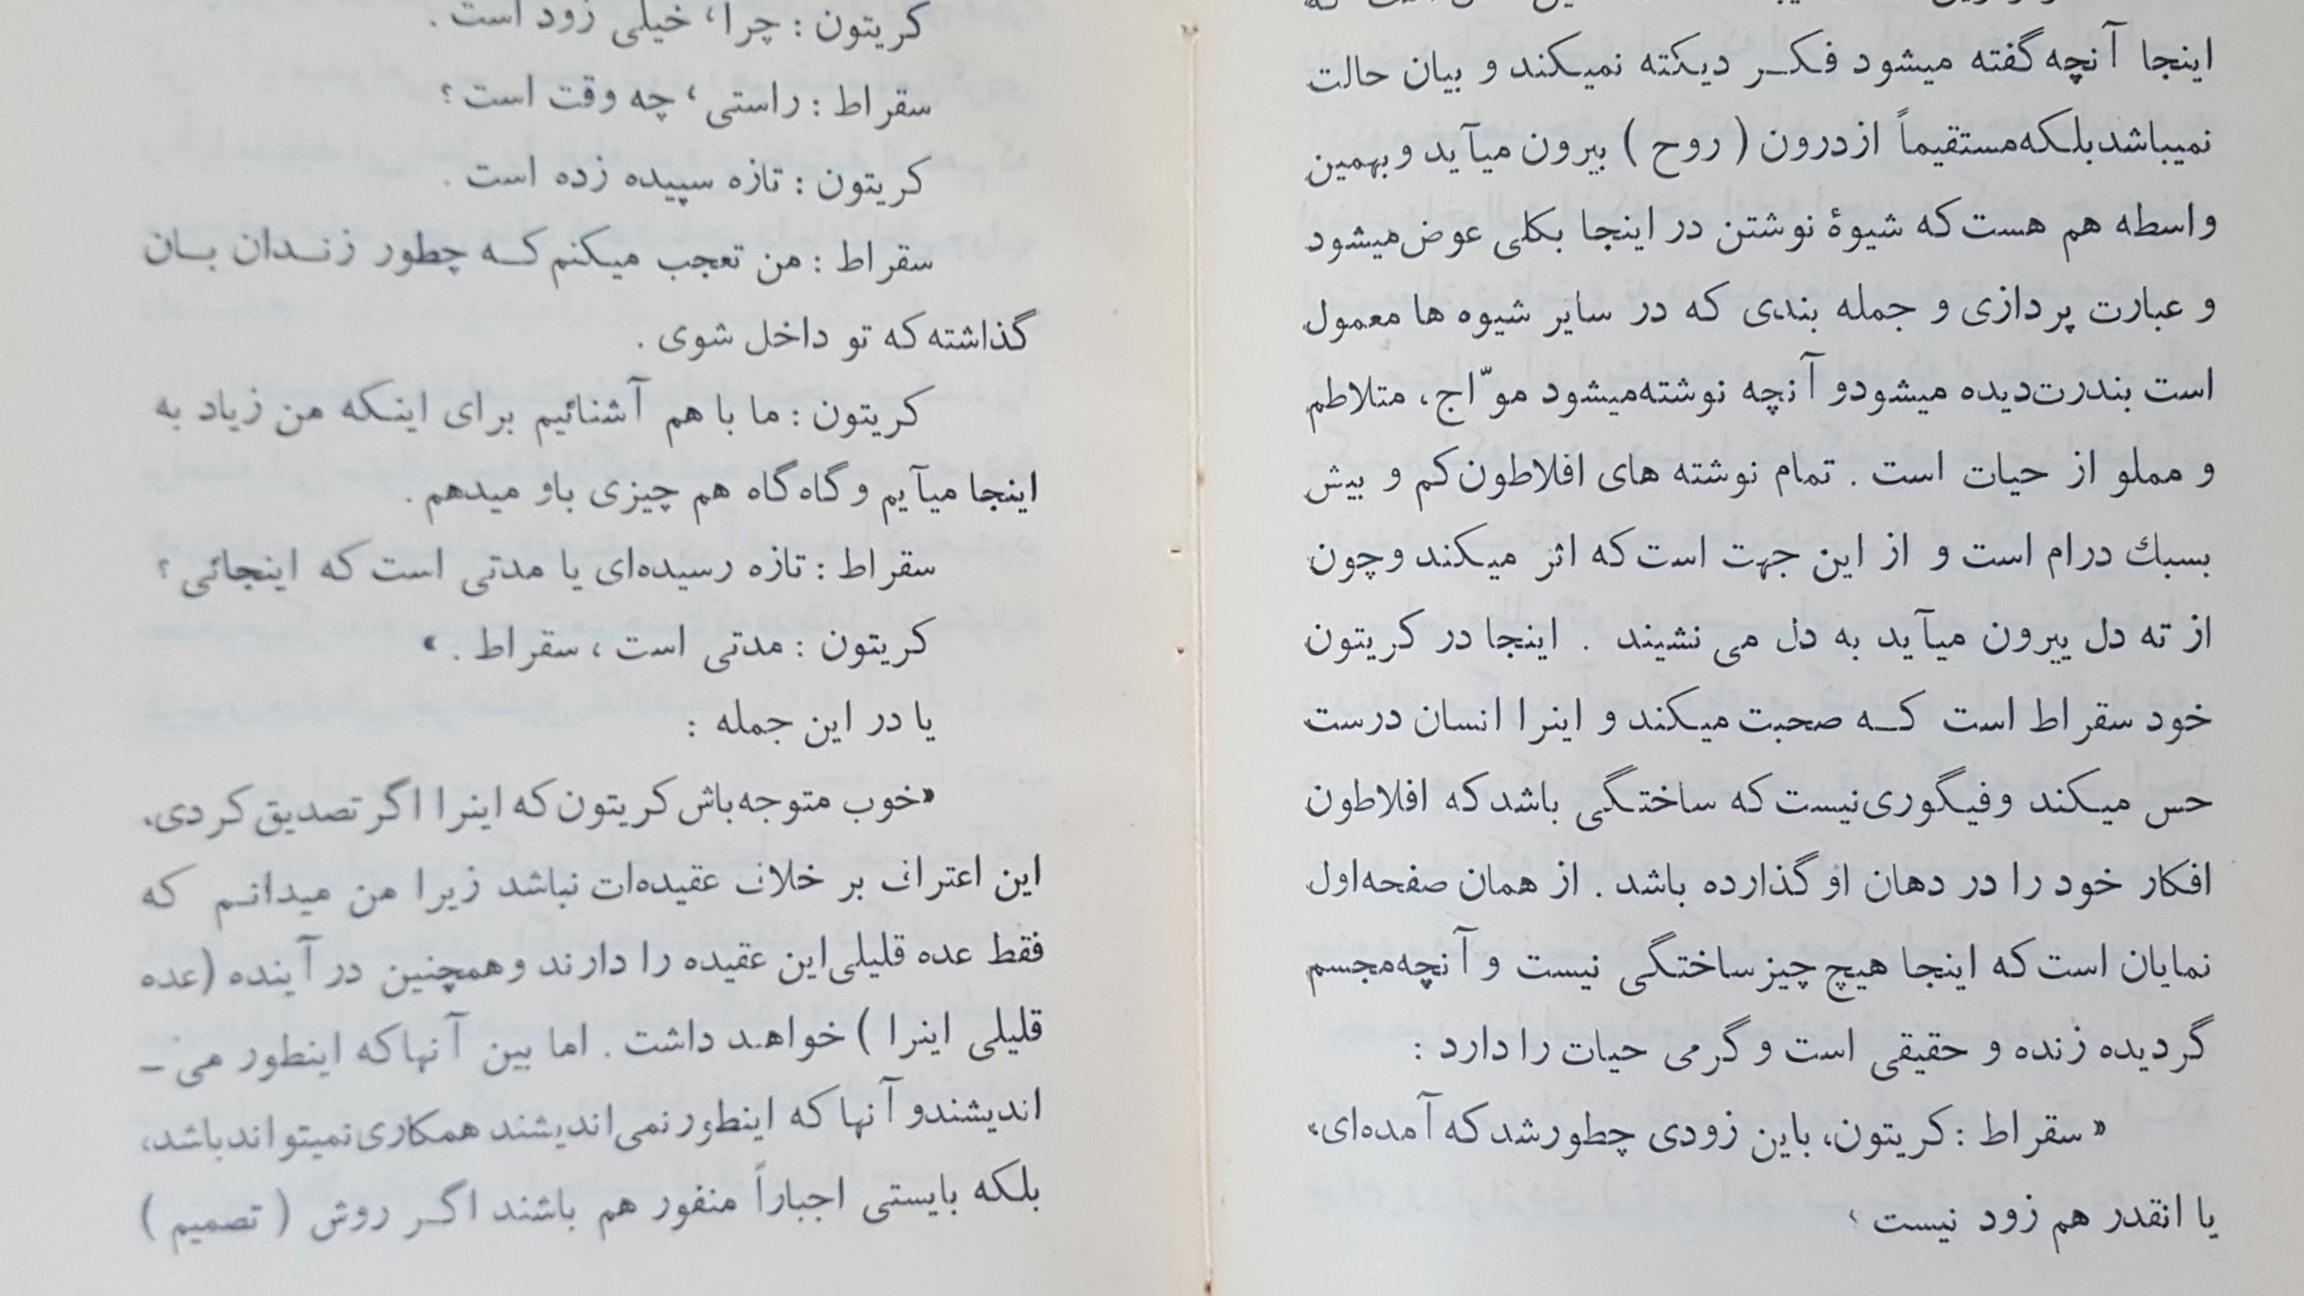 اینجا آنچه گفته میشود فکر دیکته نمیکند و بیان حالت
نمیباشد بلکه مستقیماً از درون ( روح ) بیرون میآید و بهمین
واسطه هم هست که شیوهٔ نوشتن در اینجا بکلی عوض میشود
و عبارت پردازی و جمله بندی که در سایر شیوه ها معمول
است بندرت دیده میشود و آنچه نوشته میشود موّاج، متلاطم
و مملو از حیات است . تمام نوشته های افلاطون کم و بیش
بسبك درام است و از این جهت است که اثر میکند و چون
از ته دل بیرون میآید به دل می نشیند . اینجا در کریتون
خود سقراط است که صحبت میکند و اینرا انسان درست
حس میکند و فیگوری نیست که ساختگی باشد که افلاطون
افکار خود را در دهان او گذارده باشد . از همان صفحه اول
نمایان است که اینجا هیچ چیز ساختگی نیست و آنچه مجسم
گردیده زنده و حقیقی است و گرمی حیات را دارد :
« سقراط : کریتون، باین زودی چطور شد که آمده‌ای،
یا انقدر هم زود نیست ؟
کریتون : چرا، خیلی زود است .
سقراط : راستی، چه وقت است ؟
کریتون : تازه سپیده زده است .
سقراط : من تعجب میکنم که چطور زندان بان
گذاشته که تو داخل شوی .
کریتون : ما با هم آشنائیم برای اینکه من زیاد به
اینجا میآیم و گاه گاه هم چیزی باو میدهم .
سقراط : تازه رسیده‌ای یا مدتی است که اینجائی ؟
کریتون : مدتی است ، سقراط . »
یا در این جمله :
«خوب متوجه باش کریتون که اینرا اگر تصدیق کردی،
این اعتراف بر خلاف عقیده‌ات نباشد زیرا من میدانم که
فقط عده قلیلی این عقیده را دارند و همچنین در آینده (عده
قلیلی اینرا ) خواهد داشت . اما بین آنها که اینطور می -
اندیشند و آنها که اینطور نمی اندیشند همکاری نمیتواند باشد،
بلکه بایستی اجباراً منفور هم باشند اگر روش ( تصمیم )